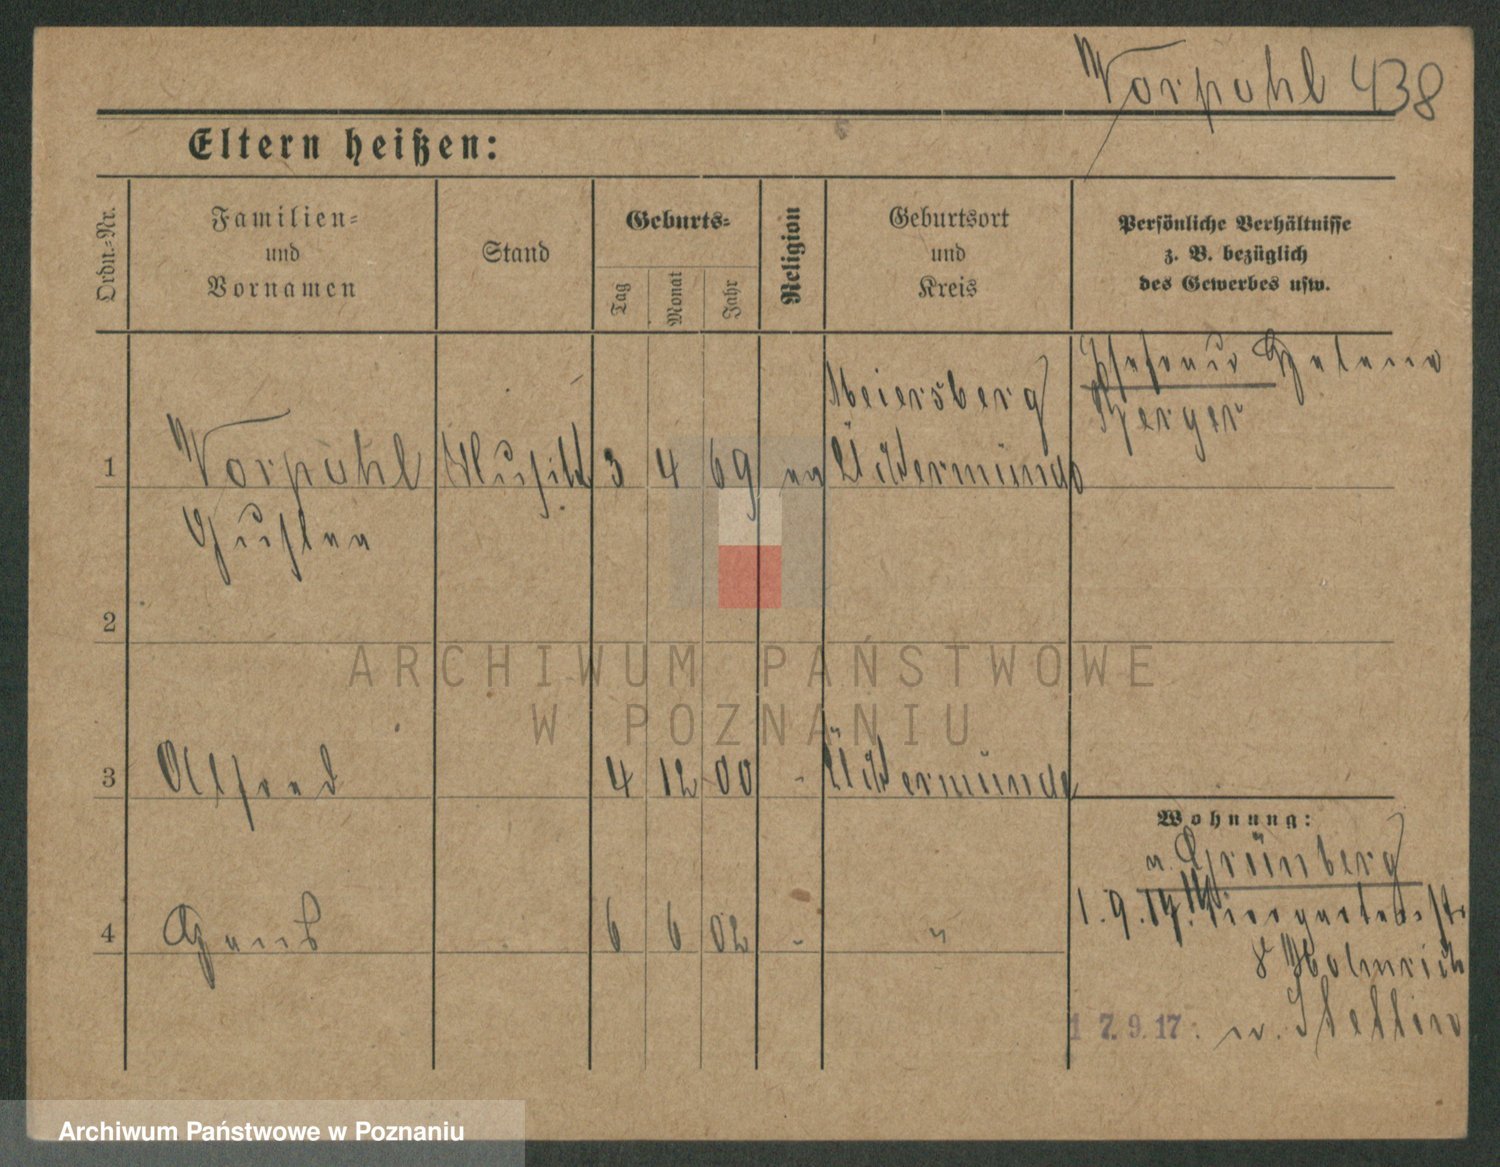 Vorpahl 438
Eltern heißen:
Ordn.-Nr.
Familien-
und
Vornamen
Stand
Geburts-
Tag
Monat
Jahr
Religion
Geburtsort
und
Kreis
Persönliche Verhältnisse
z. B. bezüglich
des Gewerbes usw.
1
Vorpahl
Gustav
3 4 69 ev
Meiersberg
Ückermünde
Ehefrau Helene
Berger
2
ARCHIWUM PAŃSTWOWE
W POZNANIU
3
Alfred
4 12 00 -
Ückermünde
4
Hans
6 6 02 - "
Wohnung:
v. Grünberg
1.9.17. Tiergartenstr
8 Molnrich
17.9.17. n. Stettin
Archiwum Państwowe w Poznaniu